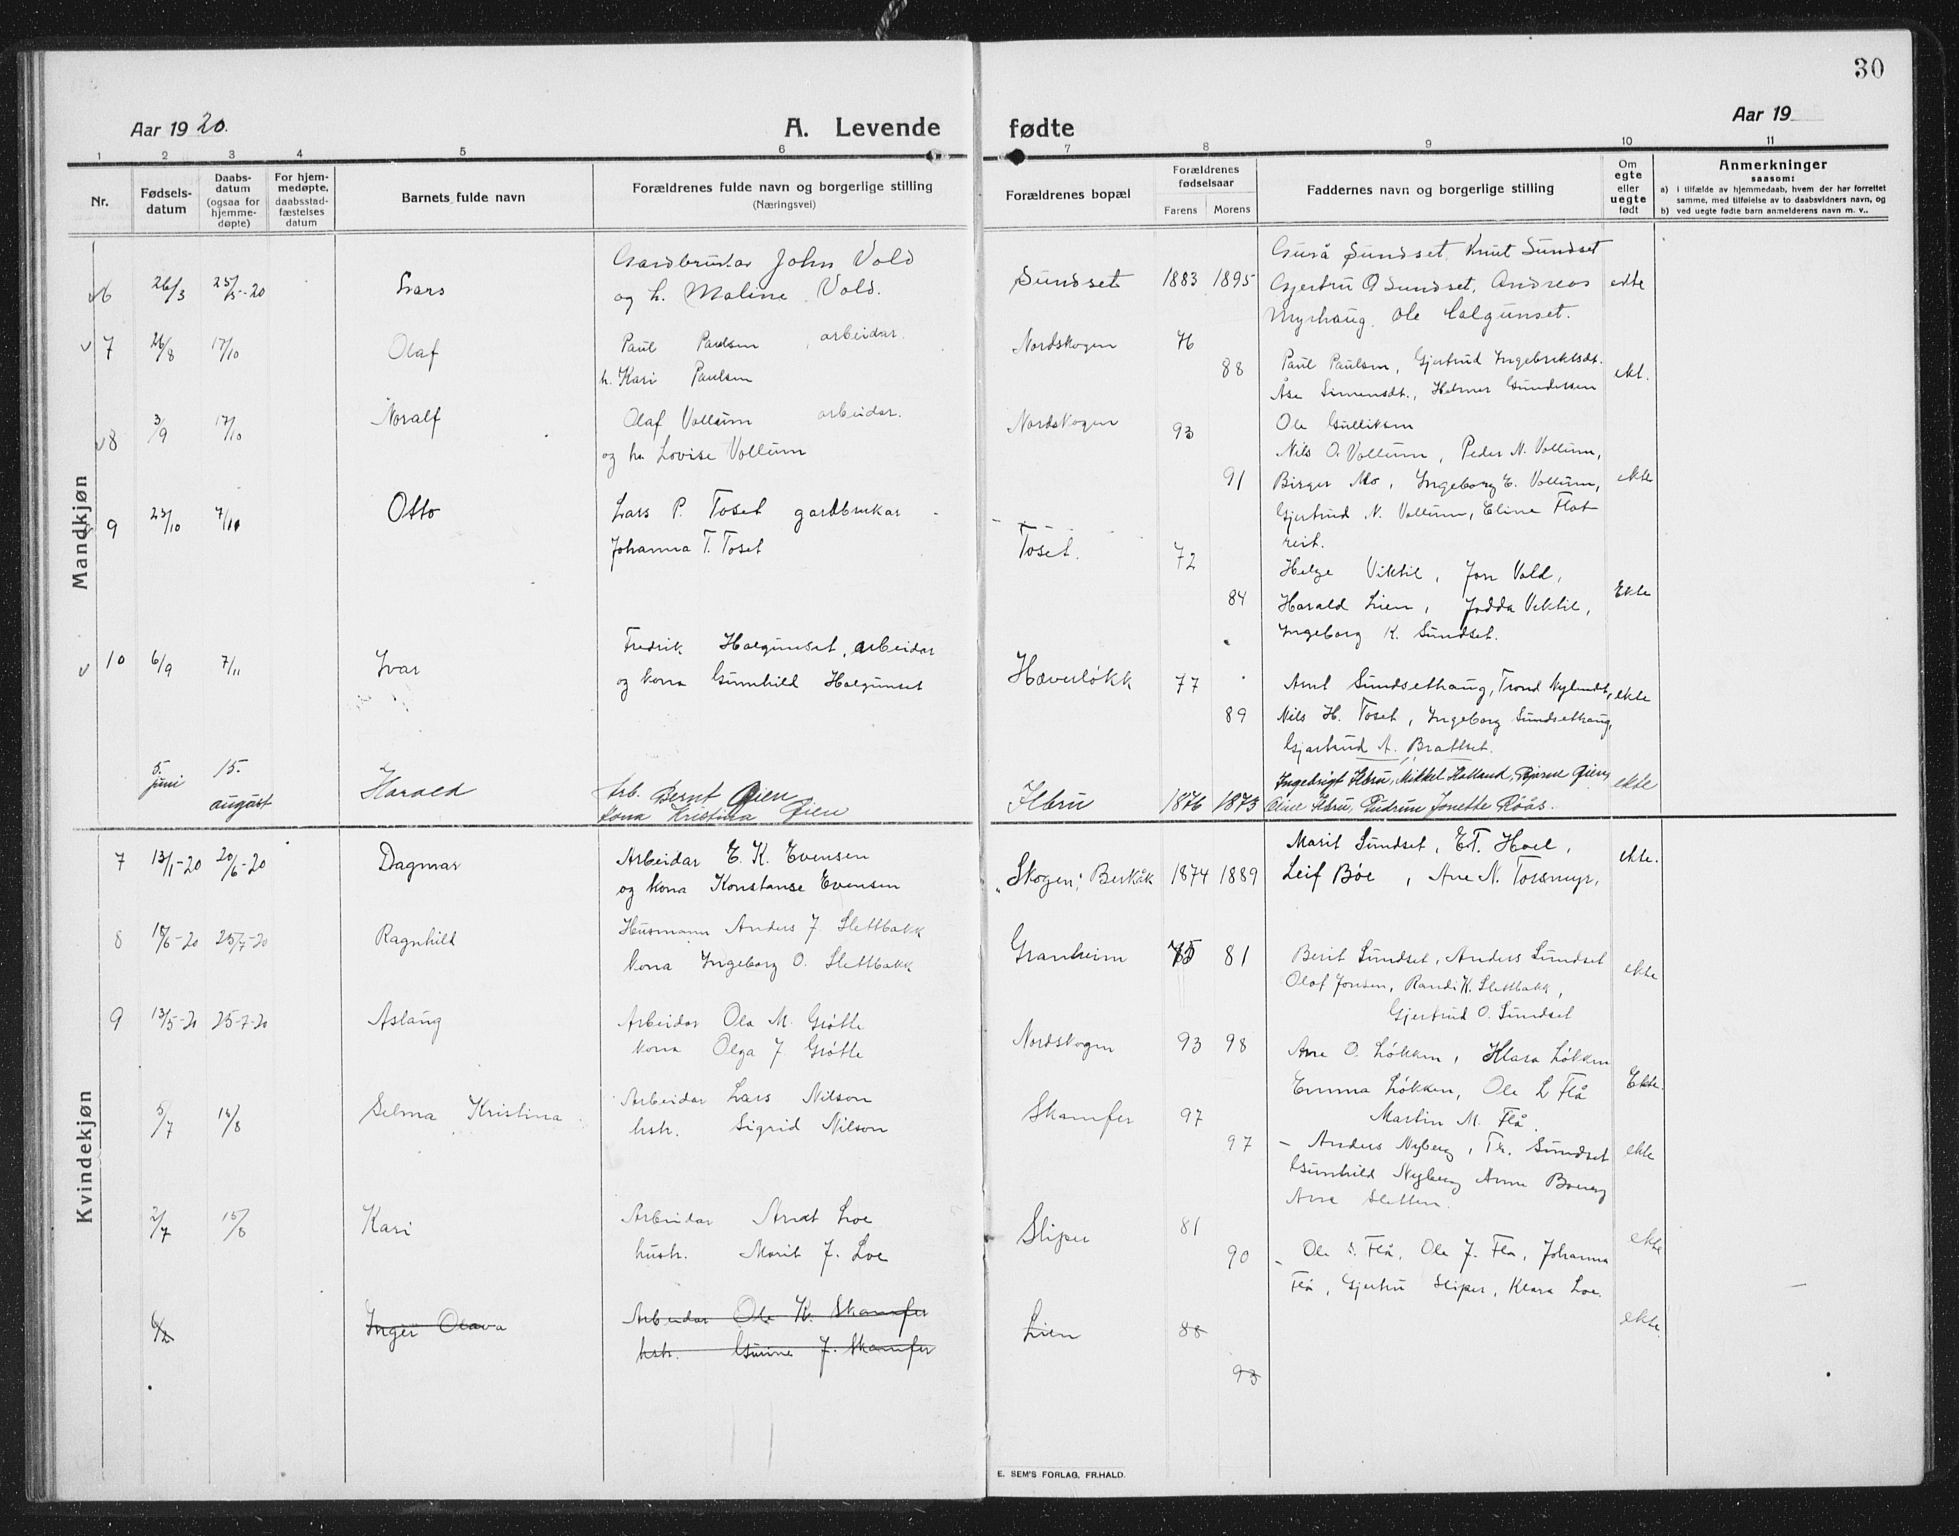 30
Aar 1920.
A. Levende
fødte
Aar 19
1 2 3 4 5 6 7 8 9 10 11
Nr.
Fødsels-
datum
Daabs-
datum
(ogsaa for
hjemme-
døpte)
For hjem-
medøpte,
daabsstad-
fæstelses
datum
Barnets fulde navn
Forældrenes fulde navn og borgerlige stilling
(Næringsvei)
Forældrenes bopæl
Forældrenes
fødselsaar
Farens Morens
Faddernes navn og borgerlige stilling
Om
egte
eller
uegte
født
Anmerkninger
saasom:
a) i tilfælde av hjemmedaab, hvem der har forrettet
samme, med tilføielse av to daabsvidners navn, og
b) ved uegte fødte barn anmelderens navn m. v..
Mandkjøn
v6 26/3 25/5-20 Lars
Gardbrukar John Vold
og h. Maline Vold.
Sundset 1883 1895
Guså Sundset, Knut Sundset
Gjertru O Sundset, Andreas
Myrhaug, Ole
ekte
v 7 26/8 17/10 Olaf
Paul Paulsen, arbeidar.
h. Kari Paulsen
Nordskogen 76
88
Paul Paulsen, Gjertrud Ingebriktsdt.
Åse Simensdt., Helmer Gundersen
ekt.
v8 3/9 17/10 Noralf
Olaf Vollum arbeidar.
og ha Lovise Vollum
Nordskogen 93
91
Ole Gulliksen
Nils O. Vollum, Peder N. Vollum,
Birger Mo, Ingeborg E. Vollum,
Gjertrud N. Vollum, Eline Flat
reit.
ekte
9 23/10 Otto
Lars P. Toset gardbrukar
Johanna T. Toset
Toset. 72
84
Helge Viktil, Jon Vold,
Harald Lien, Jodda Viktil,
Ingeborg K. Sundset.
Ekte
v 10 6/9 7/11 Ivar
Fredrik Halgunset, arbeidar
og kona Gunhild Halgunset
Hæverløkk 77
89
Arnt Sundsethaug, Trond Nylundet,
Nils H. Toset, Ingeborg Sundsethaug,
Gjertrud A. Brattset.
ekte
5. juni 15. august Harald
Arb. Bernt Øien
Kona Kristina Øien
Ilbru 1876 1873
Ingebrigt Ilbru, Mikkel Halland, Bjarne Øien,
Oline Ilbru, Gudrun Jonette Röås.
ekte
Kvindekjøn
7 13/1-20 20/6-20 Dagmar
Arbeidar E. K. Evensen
og kona Konstanse Evensen
"Skogen", Berkåk 1874 1889
Marit Sundset, E.T. Hoel,
Leif Böe, Ane N. Torsmyr,
ekte.
8 25/7-20 Ragnhild
Husmann Anders J. Slettbakk
kona Ingeborg O. Slettbakk
Granheim 75 81
Berit Sundset, Anders Sundset
Olaf Jonsen, Randi K. Slettbakk,
Gjertrud O. Sundset
ekte
9 13/5-20 25-7-20 Aslaug
Arbeidar Ola M. Grøtte
kona Olga J Grøtte
Nordskogen 93 98
Ane O. Løkken, Klara Løkken
Emma Løkken, Ole L Flå
Martin M. Flå.
Ekte.
5/7 Selma Kristina
Arbeidar Lars Nilson
hstr. Sigrid Nilson
Skamfer 97
97
- Anders Nyberg, Tr. Sundset
Gunhild Nyberg Anne
Ane Sletten.
ekte
2/7 15/8 Kari
Arbeidar Arnt Loe
hustr. Marit J. Loe
Sliper 81
90
- Ole S. Flå, Ole J. Flå, Johanna
Flå, Gjertru Sliper, Klara Loe.
ekte
Inger Olava
Arbeidar Ole K. Skamfer
hstr. Gurine J. Skamfer
Lien 88
93
ekte.
E. SEM'S FORLAG, FR.HALD.